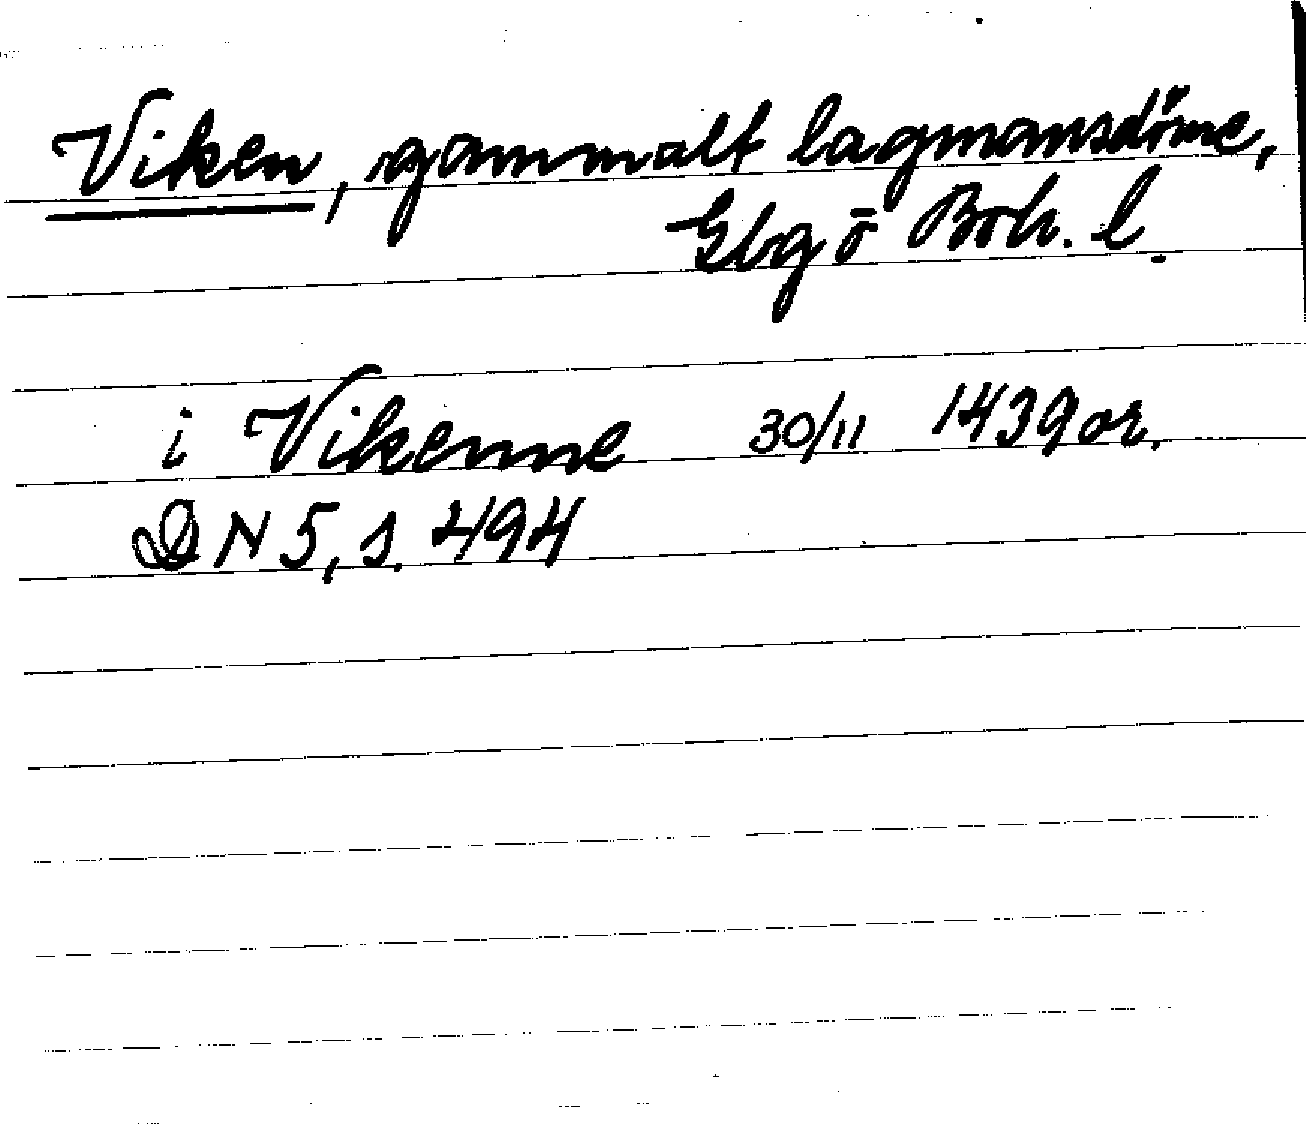 Viken, gammalt lagmansdöme,
Gbg ō Boh. l.
i Vikenne 30/11 1439 or.
DN 5, s. 494